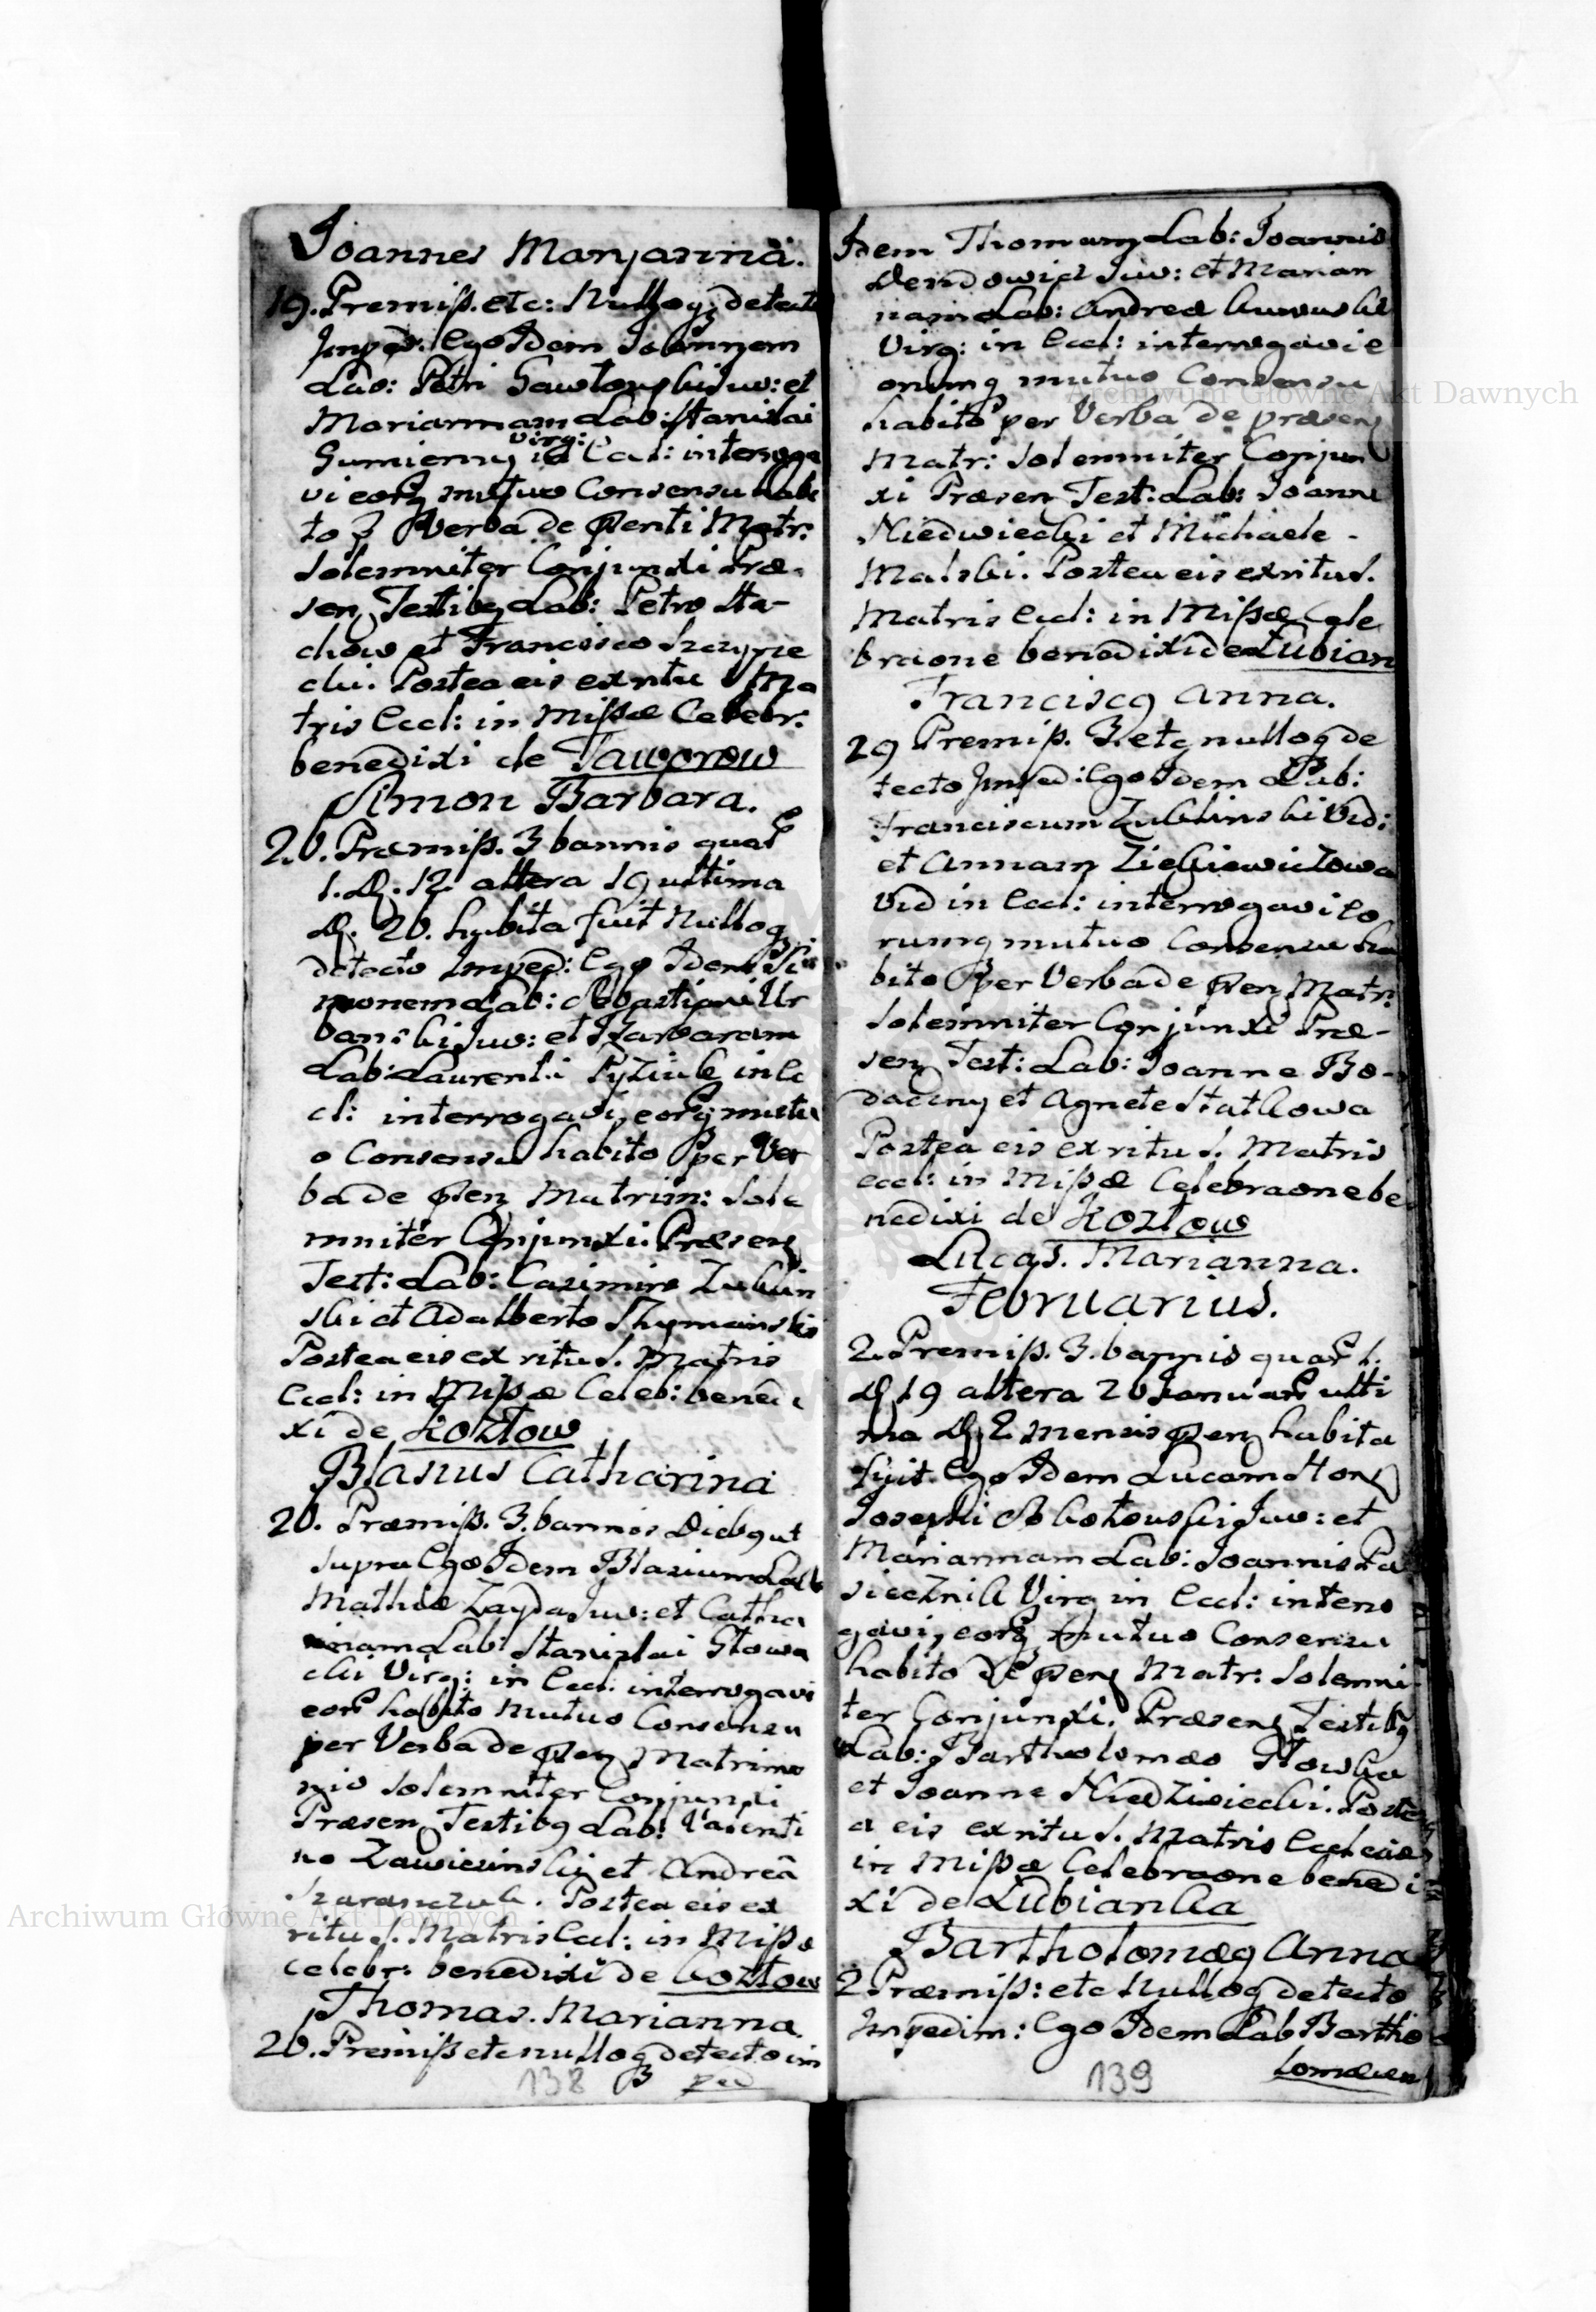 Joannes Maryanna.
19. Premiss. etc: Nulloq detecto
Imped. Ego Idem Joannem
Lab: Petri Gawłonski Juv: et
Mariannam Lab: Stanislai
virg:
Gumienny in Eccl: interroga
vi eorq mutuo Consensu habi
to p Verba de pnti Matr:
Solemniter Conjunxi Præ-
sen Testibq Lab: Petro Sta-
chow et Francisco
cki. Postea eis ex ritu S Ma
tris Eccl: in Missæ Celebr:
benedixi de Taurorow
Simon Barbara.
20. Præmiss. 3 bannis quar
1. D. 12 altera 19 ultima
D. 20. habita fuit Nulloq
detecto Imped: Ego Idem Si
monem Lab: Sebastiani Ur
banski Juv: et Barbaram
Lab: Laurentii Pyziuk in Ec
cl: interrogavi, eorq mutu
o Consensu habito per Ver
ba de pen Matrim: Sole
mniter Conjunxi. Præsen
Test: Lab: Casimiro Zublin
ski et Adalberto Szymanski
Postea eis ex ritu S. Matris
Eccl: in Missæ Celeb: benedi
xi de Kozłow
Blasius Catharina
20. Præmiss. 3. bannis Diebq ut
supra Ego Idem Blasium Lab
Mathiæ Zayda Juv: et Catha
rinam Lab: Stanislai Słowa
cki Virg: in Eccl: interrogavi
eor habito mutuo Consensu
per Verba de pen Matrimo
nio Solemniter Conjunxi
Præsen Testibq Lab: Valenti
no Zawierinski et Andrea
Szaranczuk. Postea eis ex
ritu S. Matris Eccl: in Missæ
celebr: benedixi de Kozłow
Thomas. Marianna
20. Premiss etc nulloq detecto im
138 ped
Idem Thomam Lab: Joannis
Dendowicz Juv: et Marian
nam Lab: Andreæ
Virg: in Eccl: interrogavi e
orumq mutuo Consensu
habito per Verba de præsen
Matr: Solemniter Conjun
xi Præsen Test: Lab: Joanne
Niedwiecki et Michaele -
Malski. Postea eis ex ritu S.
Matris Eccl: in Missæ Cele
braone benedixi de Łubian
Franciscq Anna.
29 Premiss. 3. etc nulloq de
tecto Imped: Ego Idem Lab:
Franciscum Zublinski Vid:
et Annam Ziekiewiczowa
Vid in Eccl: interrogavi eo
rumq mutuo Consensu ha
bito per Verba de pen Matr:
Solemniter Conjunxi Præ-
sen Test: Lab: Joanne Bo-
daczny et Agnete Statkowa
Postea eis ex ritu S. Matris
eccl: in Missæ Celebraone be
nedixi de Kozłow
Lucas. Marianna.
Februarius.
2. Premiss. 3. bannis quar 1.
D. 19 altera 20 Januar ulti
ma D. 2 mensis pen habita
fuit Ego Idem Lucam Hon
Josephi Sokołowski Juv: et
Mariannam Lab: Joannis Pa
siecznik Virg in Eccl: interro
gavi, eorq mutuo Consensu
habito de pen Matr: Solemni
ter Conjunxi. Præsen Testibq
Lab: Bartholomæo Słowka
et Joanne Niedzwiecki. Poste
a eis ex ritu S. Matris Ecclesiæ
in Missæ Celebraone benedi
xi de Łubianka
Bartholomæq Anna
2 Præmiss: etc Nulloq detecto
Impedim: Ego Idem Lab Bartho
139 lomæum
Archiwum Główne Akt Dawnych
Archiwum Główne Akt Dawnych